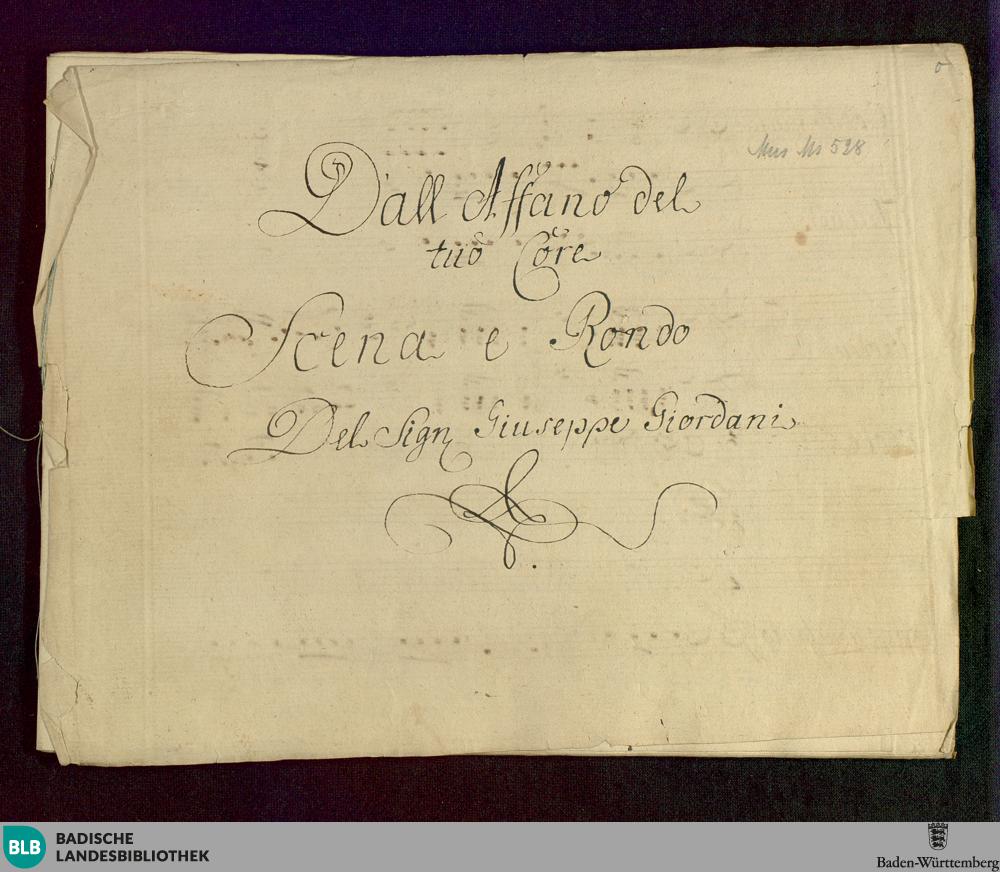 o
Mus Ms 528
Dall Affano del
tuo Core
Scena e Rondo
Del Sign Giuseppe Giordani
BLB
BADISCHE
LANDESBIBLIOTHEK
Baden-Württemberg